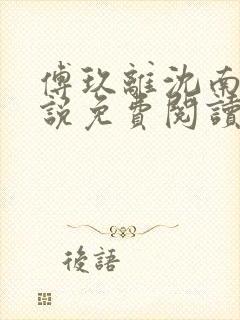 傅玖離沈南
說免費閱讀
後語